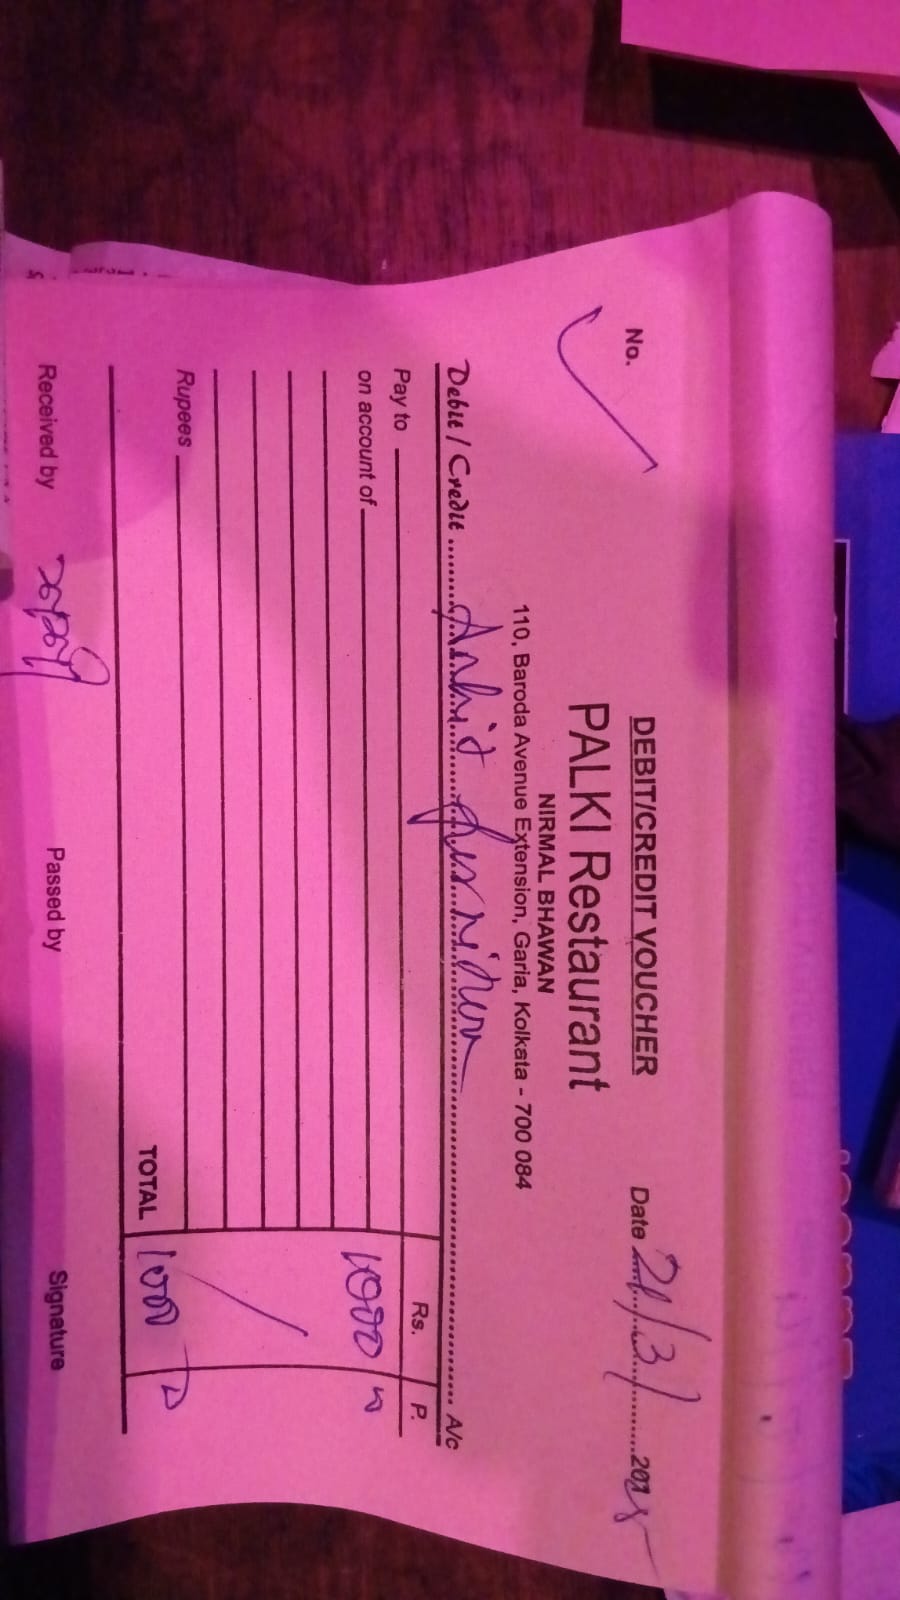 DEBIT/CREDIT VOUCHER
No. Date 21/3/ 2025
PALKI Restaurant
NIRMAL BHAWAN
110, Baroda Avenue Extension, Garia, Kolkata - 700 084
Debit / Credit A/c
Rs. P.
Pay to
on account of 1000
Rupees
TOTAL 1000
Received by Passed by Signature